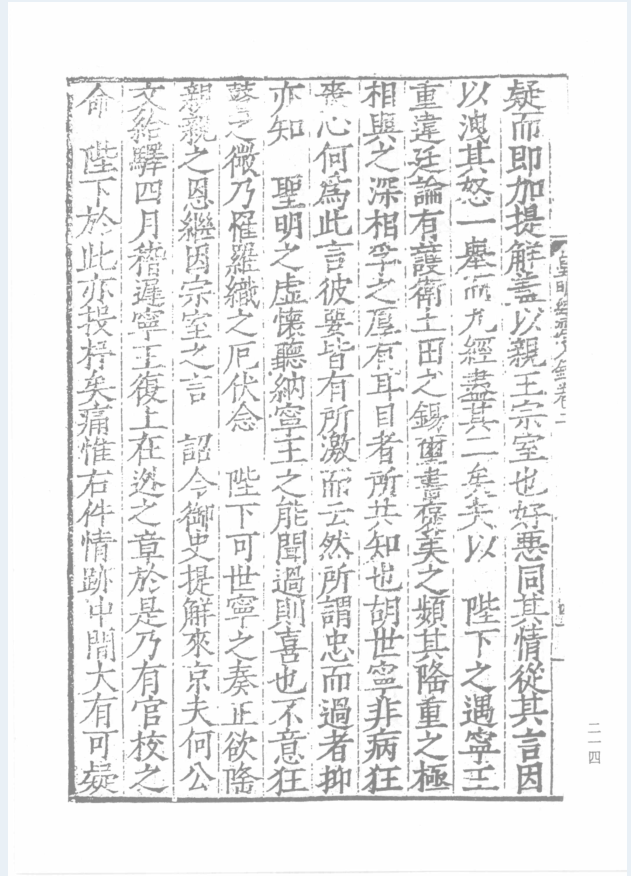 疑而即加提解蓋以親王宗室也好惡同其情從其言因
以洩其怒一舉而九經盡其二矣夫以　陛下之遇寧王
重違廷論有護衛土田之錫璽書褒美之頻其隆重之極
相與之深相孚之厚有耳目者所共知也胡世寧非病狂
喪心何爲此言彼要皆有所激而云然所謂忠而過者抑
亦知　聖明之虛懷聽納寧王之能聞過則喜也不意狂
瞽之微乃罹羅織之厄伏念　陛下可世寧之奏正欲隆
親親之恩繼因宗室之言　詔令御史提解來京夫何公
文給驛四月稽遲寧王復上在逃之章於是乃有官校之
命　陛下於此亦投杼矣痛惟右件情跡中間大有可疑
皇明經濟文錄卷二
二一四